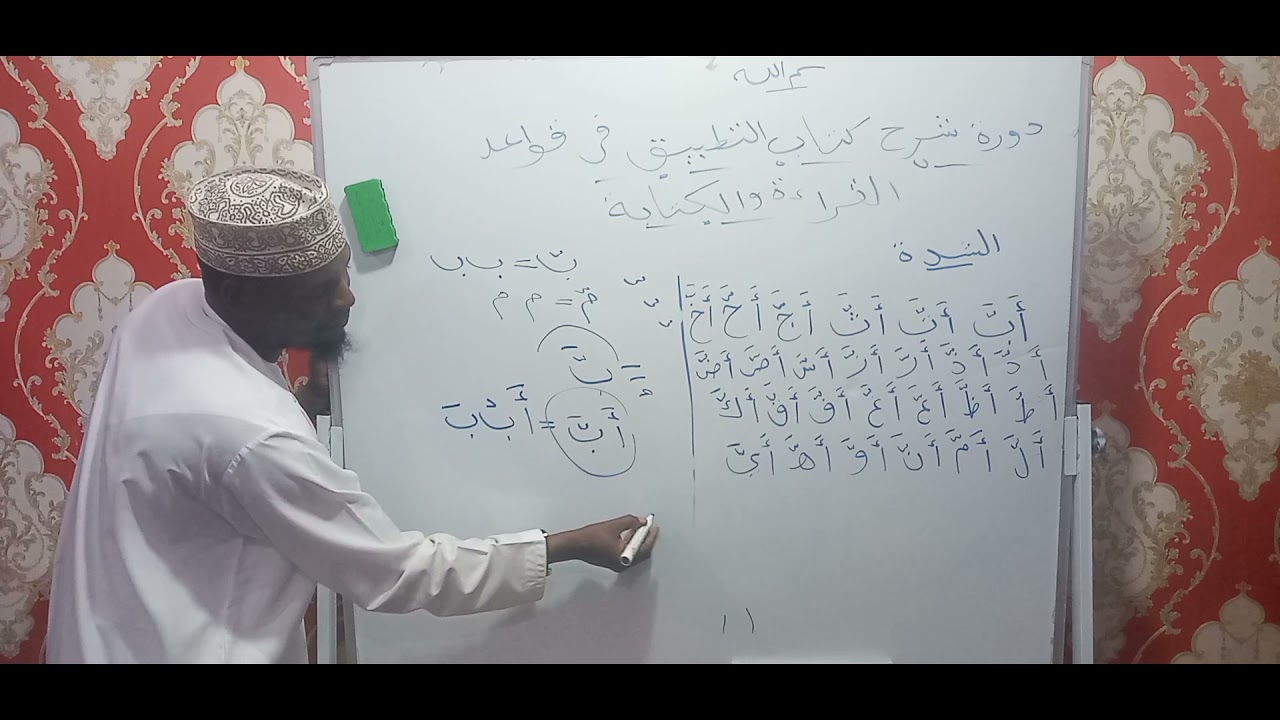 بسم الله
دورة شرح كتاب التطبيق في قواعد
القراءة والكتابة
الشدة
أَبَّ أَتَّ أَثَّ أَجَّ أَحَّ أَخَّ
أَدَّ أَذَّ أَرَّ أَزَّ أَسَّ أَصَّ أَضَّ
أَطَّ أَظَّ أَعَّ أَغَّ أَفَّ أَقَّ أَكَّ
أَلَّ أَمَّ أَنَّ أَوَّ أَهَّ أَيَّ
بّ = ب ب
مّ = م م
أَبَّ = أَبْبَ
١١